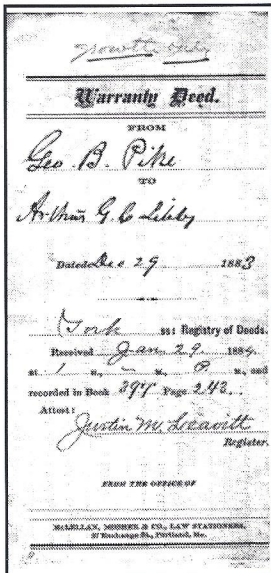 growth only
Warranty Deed.
FROM
Geo. B. Pike
TO
Arthur G. C. Libby
Dated Dec 29 1883
York ss: Registry of Deeds.
Received Jan. 29. 1884.
at 1 H., – M., P. M., and
recorded in Book 397 Page 243.
Attest:
Justin M. Leavitt
Register.
FROM THE OFFICE OF
McLELLAN, MOSHER & CO., LAW STATIONERS,
Exchange St., Portland, Me.